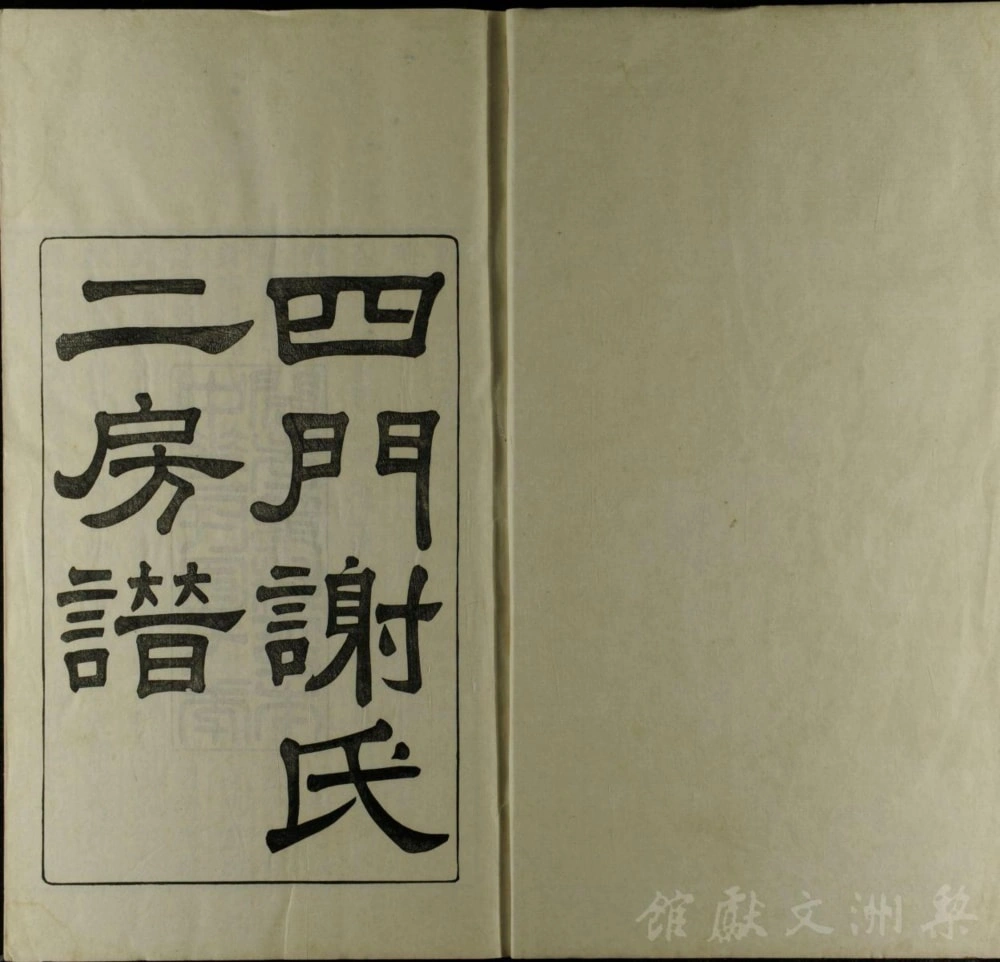 四門謝氏
二房譜
梨洲文獻館